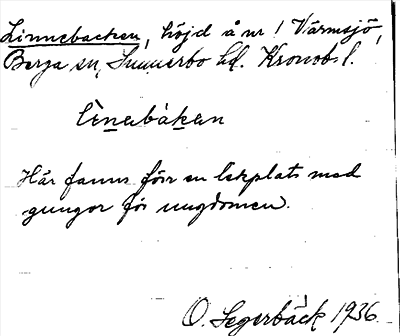 Linnebacken, höjd å nr 1 Värmsjö,
Berga sn, Sunnerbo hd. Kronobs l.
lìnebàkan
Här fanns förr en lekplats med
gungor för ungdomen.
O. Segerbäck 1936.